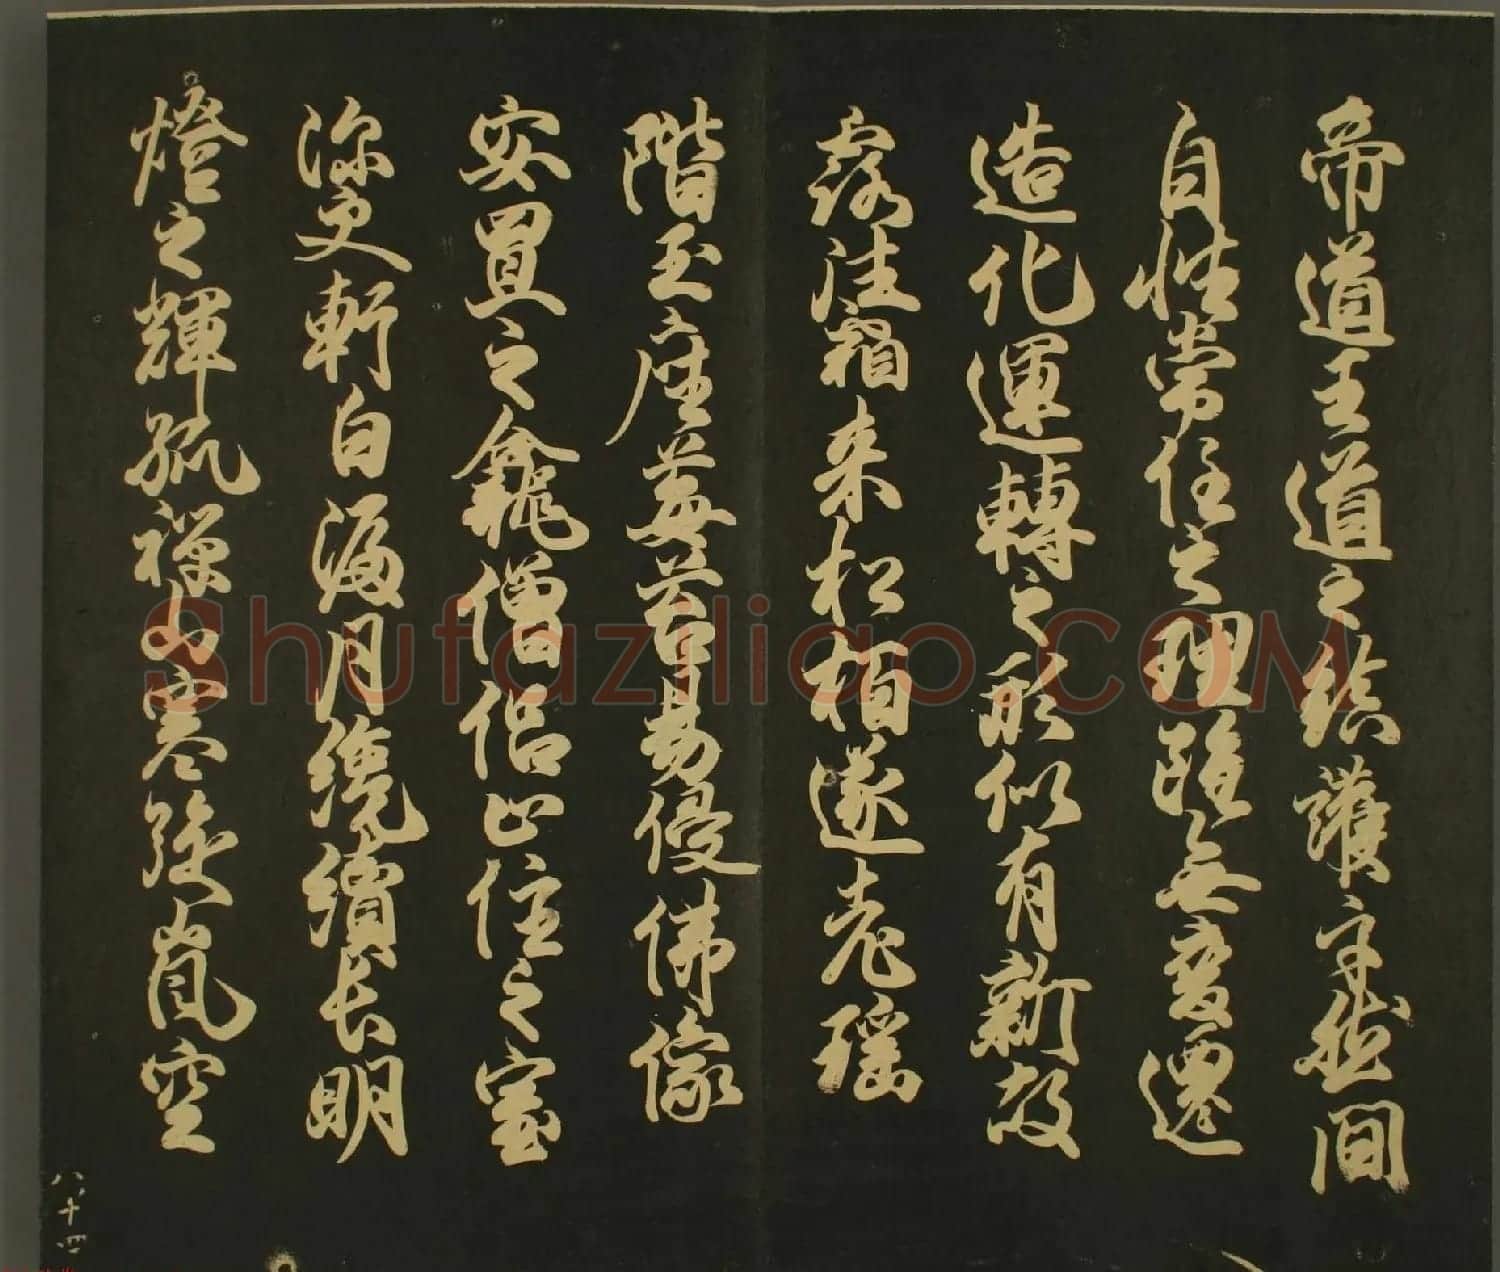 帝道王道之鎮護字然間
自性常住之理雖無變遷
造化運轉之形似有新故
露往霜来松柏遂老瑤
階玉座莓苔易侵佛像
安置之龕僧侶止住之室
深更軒白漏月纔續長明
燈之輝孤禪如寒殘嵐空
八ノ十四
Shufaziliao.COM